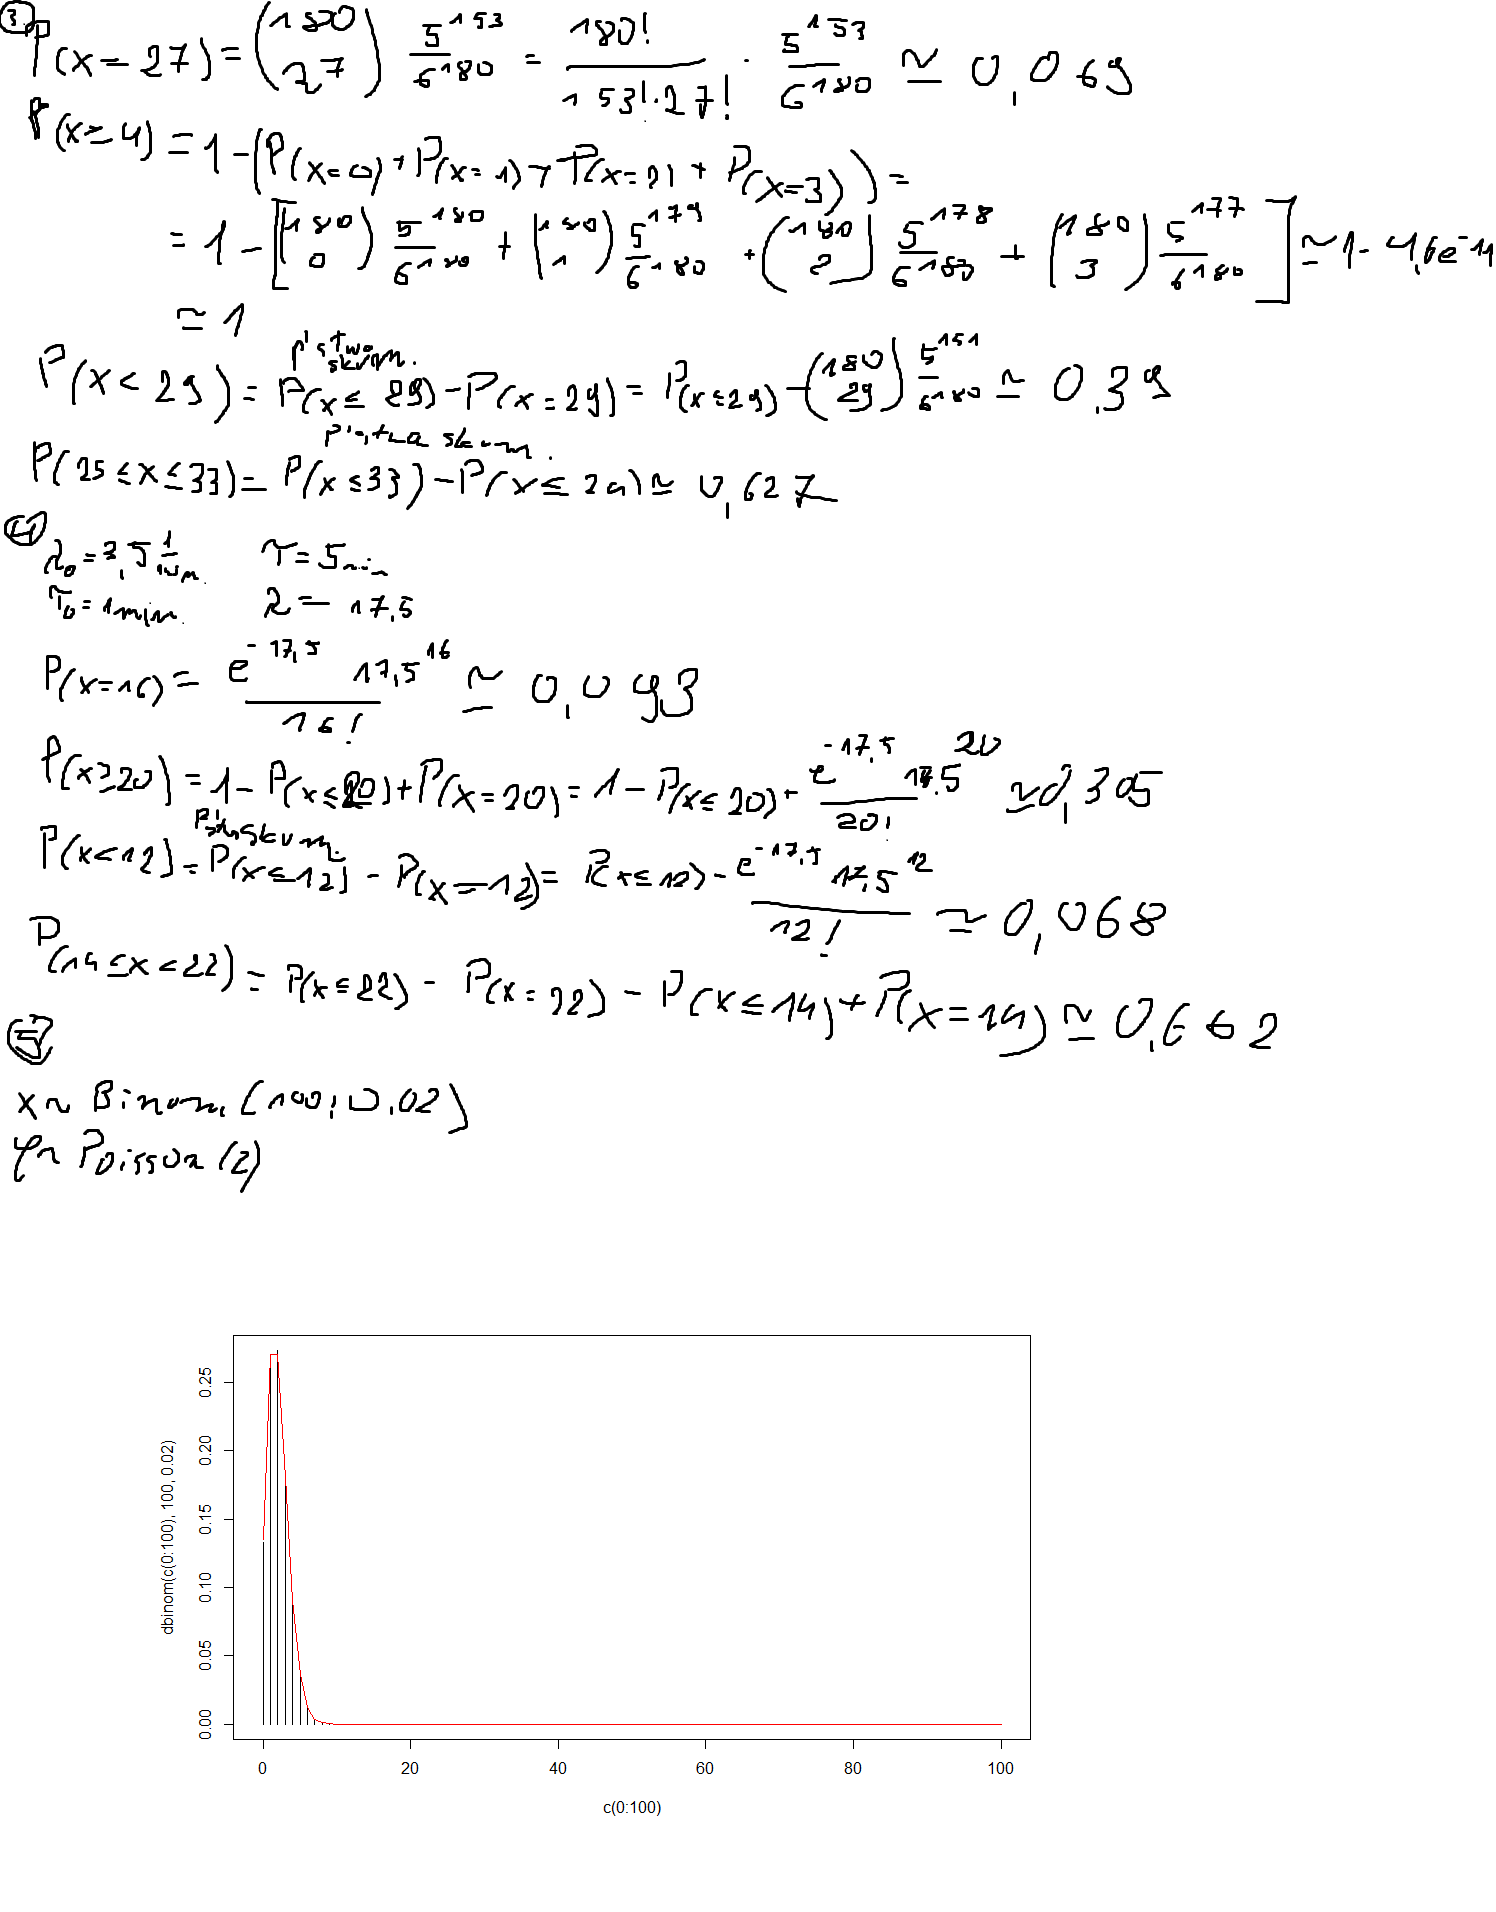 3.
P(x=27) = (180 27) 5^153/6^180 = 180!/(153!·27!) · 5^153/6^180 ≃ 0,069
P(x≥4) = 1-(P(x=0)+P(x=1)+P(x=2)+P(x=3)) =
= 1-[(180 0) 5^180/6^180 + (180 1) 5^179/6^180 + (180 2) 5^178/6^180 + (180 3) 5^177/6^180] ≃ 1-4,6e^-11
≃ 1
p'stwo skum.
P(x<29) = P(x≤29)-P(x=29) = P(x≤29)-(180 29) 5^151/6^180 ≃ 0,39
p'stwa skum.
P(25≤x≤33) = P(x≤33)-P(x≤24) ≃ 0,627
4
λ₀=3,5 1/min. τ=5min
τ₀=1min. λ=17,5
P(x=16) = e^-17,5 17,5^16/16! ≃ 0,093
P(x≥20) = 1-P(x≤20)+P(x=20) = 1-P(x≤20)+ e^-17,5 17,5^20/20! ≃ 0,305
p'stwo skum.
P(x<12) = P(x≤12) - P(x=12) = P(x≤12) - e^-17,5 17,5^12/12! ≃ 0,068
P(14≤x<22) = P(x≤22) - P(x=22) - P(x≤14)+P(x=14) ≃ 0,662
5
X~ Binom.(100; 0,02)
Y~ Poisson (2)
dbinom(c(0:100), 100, 0.02)
0.25
0.20
0.15
0.10
0.05
0.00
0 20 40 60 80 100
c(0:100)